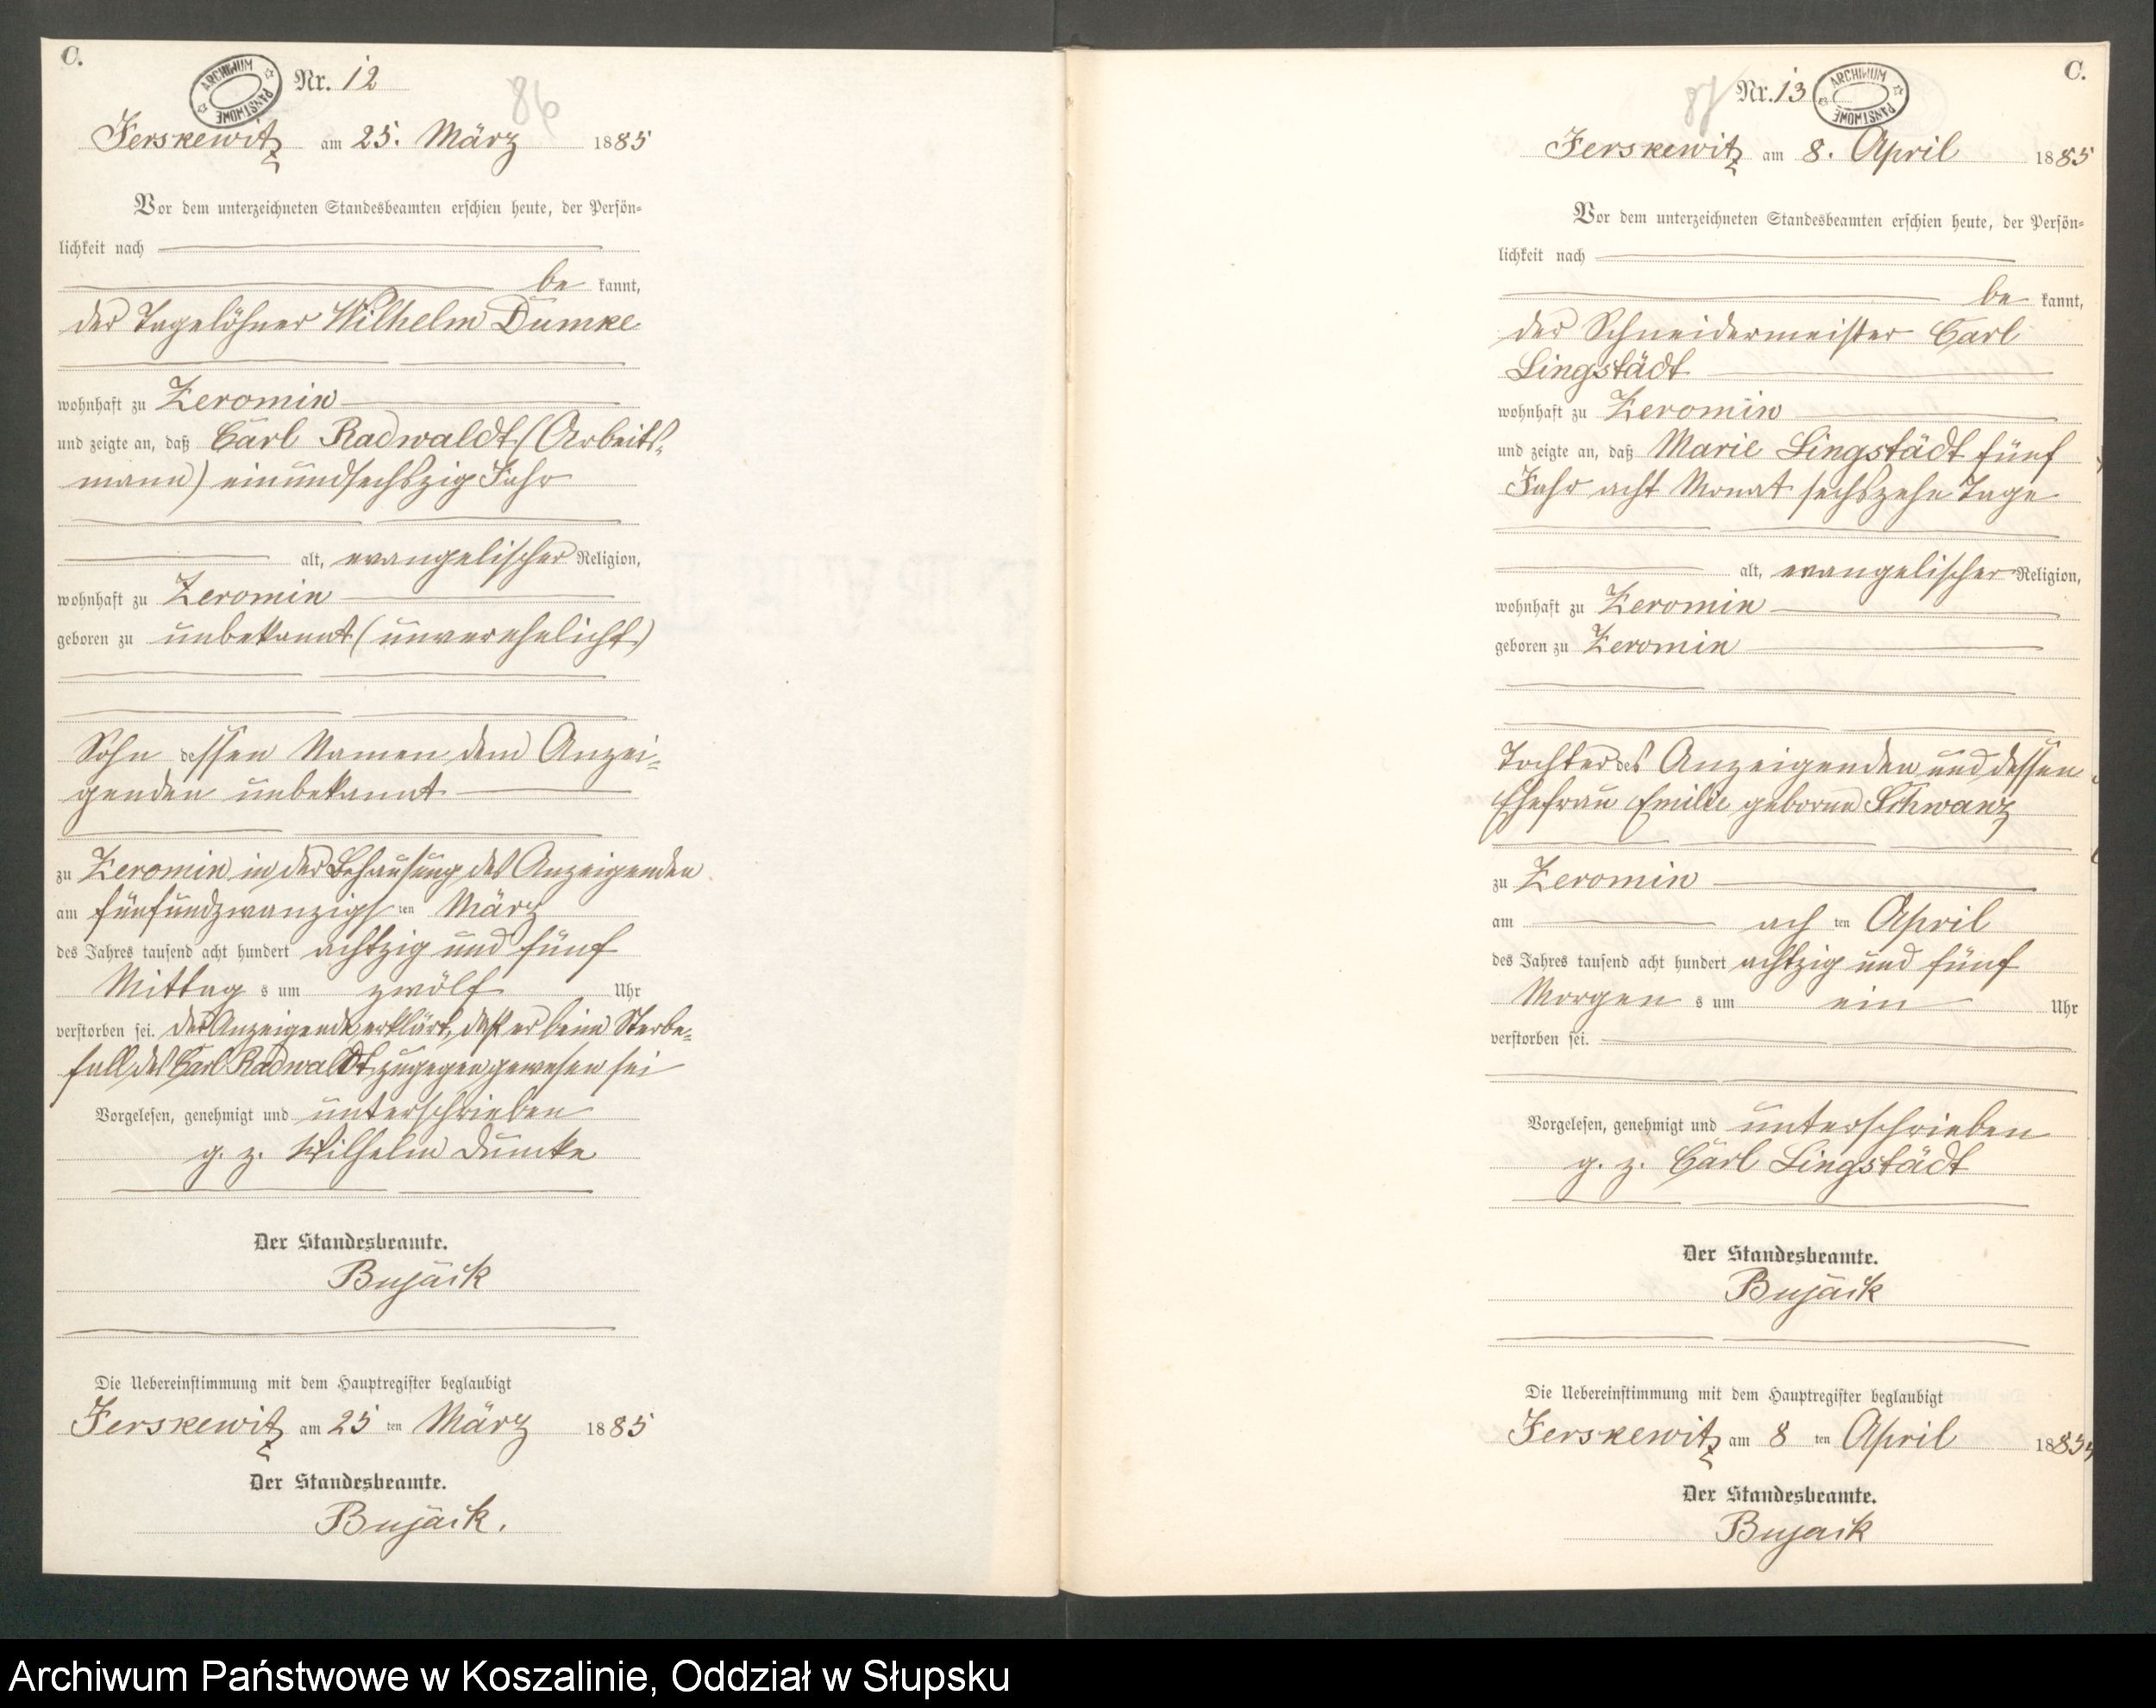 C.
ARCHIWUM PAŃSTWOWE
Nr. 12
86
Jerskewitz am 25. März 1885
Vor dem unterzeichneten Standesbeamten erschien heute, der Persön-
lichkeit nach
be kannt,
der Tagelöhner Wilhelm Dumke
wohnhaft zu Zeromin
und zeigte an, daß Carl Radwaldt (Arbeits-
mann) einundsechszig Jahr
alt, evangelischer Religion,
wohnhaft zu Zeromin
geboren zu unbekannt (unverehelicht)
Sohn dessen Namen dem Anzei-
genden unbekannt
zu Zeromin in der Behausung des Anzeigenden
am fünfundzwanzigsten März
des Jahres tausend acht hundert achtzig und fünf
Mittag s um zwölf Uhr
verstorben sei. Der Anzeigende erklärt, daß er beim Sterbe-
fall des Carl Radwaldt zugegen gewesen sei
Vorgelesen, genehmigt und unterschrieben
g. z. Wilhelm Dumke
Der Standesbeamte.
Bujack
Die Uebereinstimmung mit dem Hauptregister beglaubigt
Jerskewitz am 25 ten März 1885
Der Standesbeamte.
Bujack.
C.
87
Nr. 13
ARCHIWUM PAŃSTWOWE
Jerskewitz am 8. April 1885
Vor dem unterzeichneten Standesbeamten erschien heute, der Persön-
lichkeit nach
be kannt,
der Schneidermeister Carl
Lingstädt
wohnhaft zu Zeromin
und zeigte an, daß Marie Lingstädt fünf
Jahr acht Monat sechszehn Tage
alt, evangelischer Religion,
wohnhaft zu Zeromin
geboren zu Zeromin
Tochter des Anzeigenden und dessen
Ehefrau Emilie geborne Schwanz
zu Zeromin
am ach ten April
des Jahres tausend acht hundert achtzig und fünf
Morgen s um ein Uhr
verstorben sei.
Vorgelesen, genehmigt und unterschrieben
g. z. Carl Lingstädt
Der Standesbeamte.
Bujack
Die Uebereinstimmung mit dem Hauptregister beglaubigt
Jerskewitz am 8 ten April 1885
Der Standesbeamte.
Bujack
Archiwum Państwowe w Koszalinie, Oddział w Słupsku